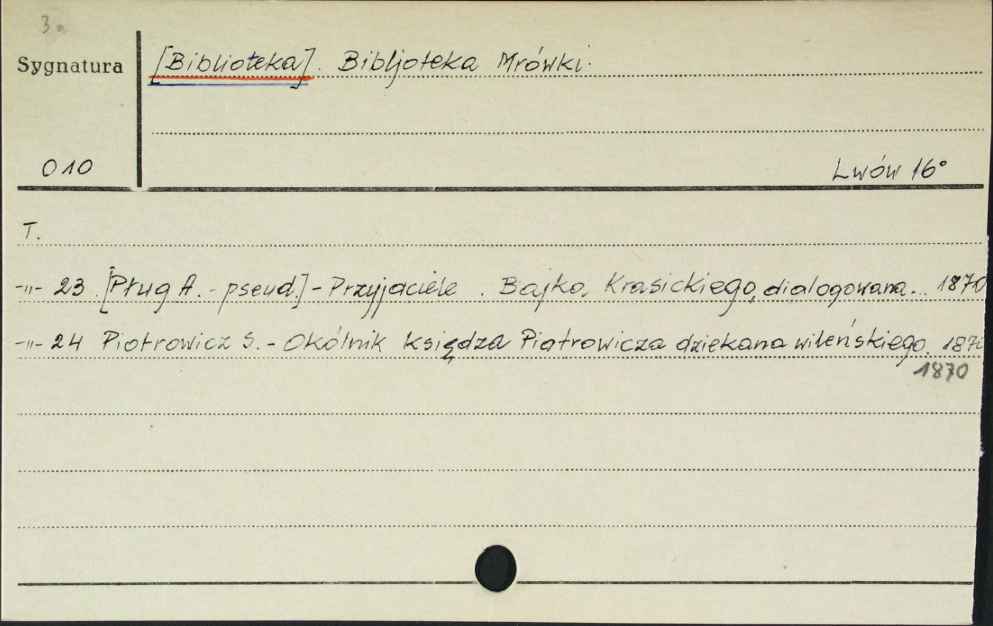 3.
Sygnatura [Biblioteka]. Bibljoteka Mrówki.
010 Lwów 16°
T.
-"- 23 [Pług A. - pseud.] - Przyjaciele. Bajka Krasickiego, dialogowana. 1870
-"- 24 Piotrowicz S. - Okólnik księdza Piotrowicza dziekana wileńskiego. 1870
1870